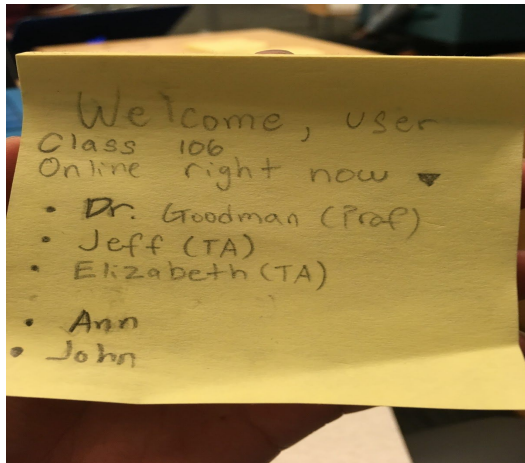 Welcome, user
Class 106
Online right now ▼
• Dr. Goodman (Prof)
• Jeff (TA)
• Elizabeth (TA)
• Ann
• John